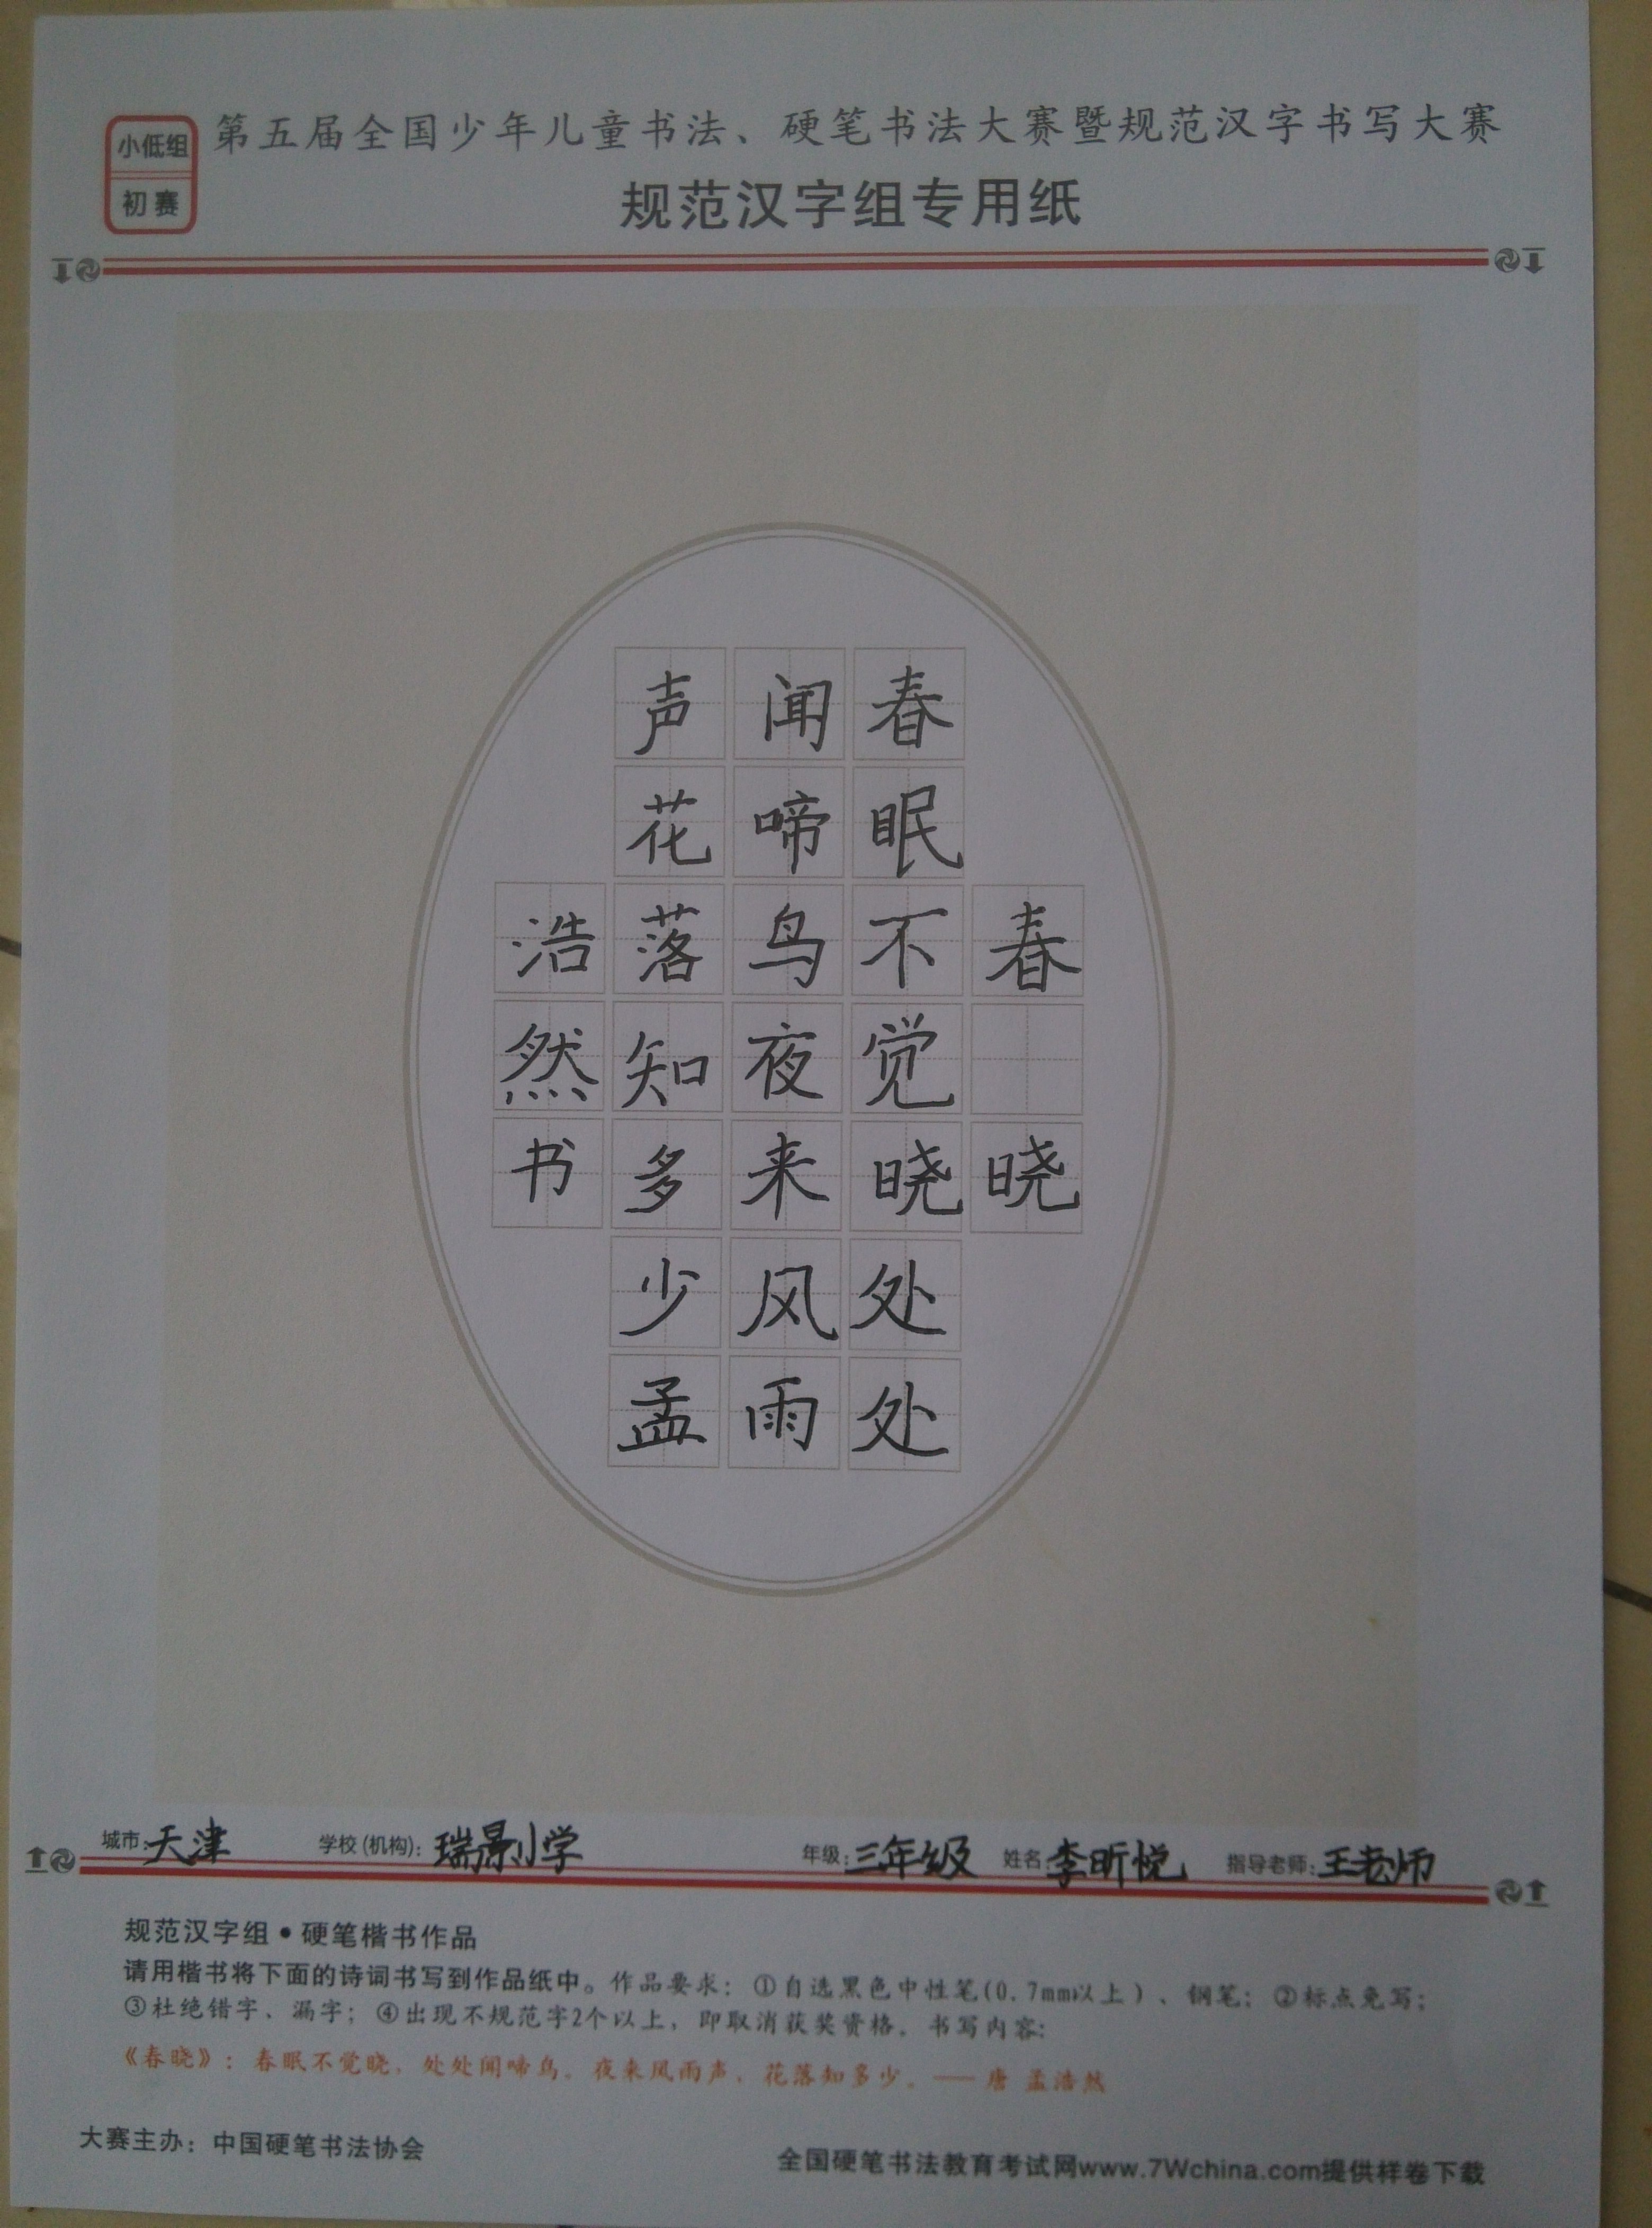 小低组
初赛
第五届全国少年儿童书法、硬笔书法大赛暨规范汉字书写大赛
规范汉字组专用纸
春晓
春眠不觉晓处处
闻啼鸟夜来风雨
声花落知多少孟
浩然书
城市:天津 学校(机构):瑞景小学 年级:三年级 姓名:李昕悦 指导老师:王老师
规范汉字组•硬笔楷书作品
请用楷书将下面的诗词书写到作品纸中。作品要求：①自选黑色中性笔(0.7mm以上)、钢笔；②标点免写；
③杜绝错字、漏字；④出现不规范字2个以上，即取消获奖资格。书写内容:
《春晓》：春眠不觉晓，处处闻啼鸟。夜来风雨声，花落知多少。——唐 孟浩然
大赛主办：中国硬笔书法协会
全国硬笔书法教育考试网www.7Wchina.com提供样卷下载